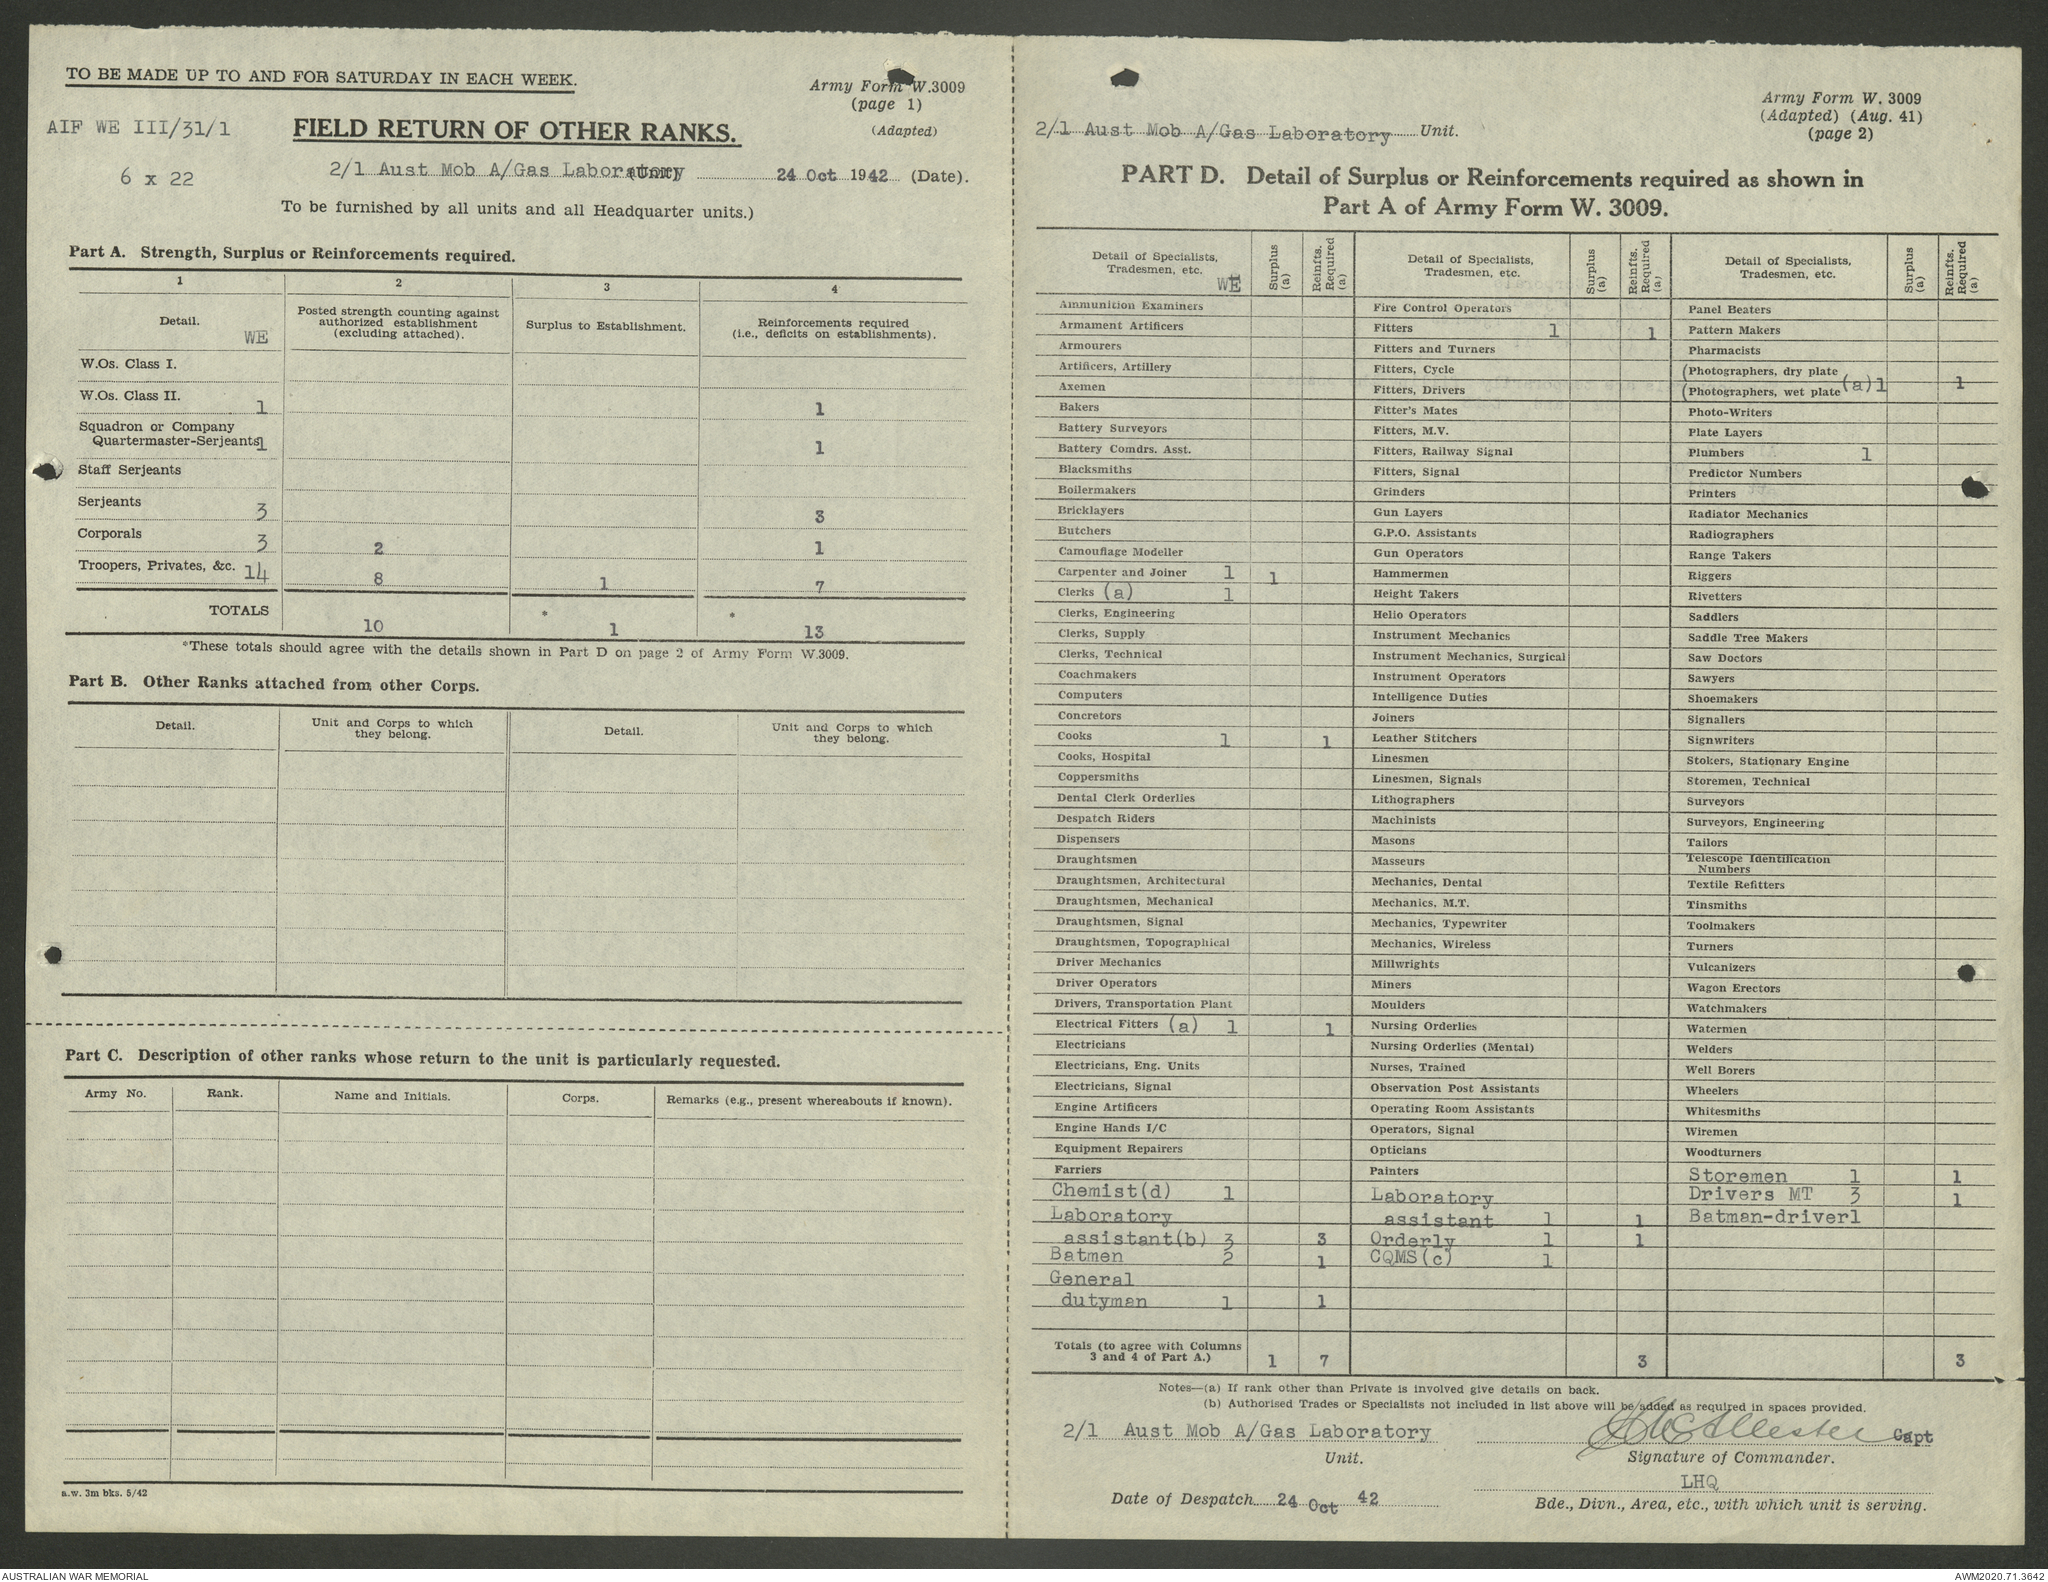 TO BE MADE UP TO AND FOR SATURDAY IN EACH WEEK.
Army Form W.3009
(page 1)
(Adapted)
AIF WE III/31/1
FIELD RETURN OF OTHER RANKS.
6 x 22
2/1 Aust Mob A/Gas Laboratory (Unit) 24 Oct 1942 (Date).
To be furnished by all units and all Headquarter units.)
Part A. Strength, Surplus or Reinforcements required.
1 2 3 4
Detail. WE
Posted strength counting against
authorized establishment
(excluding attached).
Surplus to Establishment.
Reinforcements required
(i.e., deficits on establishments).
W.Os. Class I.
W.Os. Class II. 1 1
Squadron or Company
Quartermaster-Serjeants 1 1
Staff Serjeants
Serjeants 3 3
Corporals 3 2 1
Troopers, Privates, &c. 14 8 1 7
TOTALS 10 * 1 * 13
*These totals should agree with the details shown in Part D on page 2 of Army Form W.3009.
Part B. Other Ranks attached from other Corps.
Detail.
Unit and Corps to which
they belong.
Detail.
Unit and Corps to which
they belong.
Part C. Description of other ranks whose return to the unit is particularly requested.
Army No. Rank. Name and Initials. Corps. Remarks (e.g., present whereabouts if known).
a.w. 3m bks. 5/42
Army Form W. 3009
(Adapted) (Aug. 41)
(page 2)
2/1 Aust Mob A/Gas Laboratory Unit.
PART D. Detail of Surplus or Reinforcements required as shown in
Part A of Army Form W. 3009.
Detail of Specialists,
Tradesmen, etc.
WE
Surplus (a)
Reinfts. Required (a)
Ammunition Examiners
Armament Artificers
Armourers
Artificers, Artillery
Axemen
Bakers
Battery Surveyors
Battery Comdrs. Asst.
Blacksmiths
Boilermakers
Bricklayers
Butchers
Camouflage Modeller
Carpenter and Joiner 1 1
Clerks (a) 1
Clerks, Engineering
Clerks, Supply
Clerks, Technical
Coachmakers
Computers
Concretors
Cooks 1 1
Cooks, Hospital
Coppersmiths
Dental Clerk Orderlies
Despatch Riders
Dispensers
Draughtsmen
Draughtsmen, Architectural
Draughtsmen, Mechanical
Draughtsmen, Signal
Draughtsmen, Topographical
Driver Mechanics
Driver Operators
Drivers, Transportation Plant
Electrical Fitters (a) 1 1
Electricians
Electricians, Eng. Units
Electricians, Signal
Engine Artificers
Engine Hands I/C
Equipment Repairers
Farriers
Chemist(d) 1
Laboratory
assistant(b) 3 3
Batmen 2 1
General
dutyman 1 1
Detail of Specialists,
Tradesmen, etc.
Surplus (a)
Reinfts. Required (a)
Fire Control Operators
Fitters 1 1
Fitters and Turners
Fitters, Cycle
Fitters, Drivers
Fitter's Mates
Fitters, M.V.
Fitters, Railway Signal
Fitters, Signal
Grinders
Gun Layers
G.P.O. Assistants
Gun Operators
Hammermen
Height Takers
Helio Operators
Instrument Mechanics
Instrument Mechanics, Surgical
Instrument Operators
Intelligence Duties
Joiners
Leather Stitchers
Linesmen
Linesmen, Signals
Lithographers
Machinists
Masons
Masseurs
Mechanics, Dental
Mechanics, M.T.
Mechanics, Typewriter
Mechanics, Wireless
Millwrights
Miners
Moulders
Nursing Orderlies
Nursing Orderlies (Mental)
Nurses, Trained
Observation Post Assistants
Operating Room Assistants
Operators, Signal
Opticians
Painters
Laboratory
assistant 1 1
Orderly 1 1
CQMS(c) 1
Detail of Specialists,
Tradesmen, etc.
Surplus (a)
Reinfts. Required (a)
Panel Beaters
Pattern Makers
Pharmacists
(Photographers, dry plate
(Photographers, wet plate (a)1 1
Photo-Writers
Plate Layers
Plumbers 1
Predictor Numbers
Printers
Radiator Mechanics
Radiographers
Range Takers
Riggers
Rivetters
Saddlers
Saddle Tree Makers
Saw Doctors
Sawyers
Shoemakers
Signallers
Signwriters
Stokers, Stationary Engine
Storemen, Technical
Surveyors
Surveyors, Engineering
Tailors
Telescope Identification
Numbers
Textile Refitters
Tinsmiths
Toolmakers
Turners
Vulcanizers
Wagon Erectors
Watchmakers
Watermen
Welders
Well Borers
Wheelers
Whitesmiths
Wiremen
Woodturners
Storemen 1 1
Drivers MT 3 1
Batman-driver1
Totals (to agree with Columns
3 and 4 of Part A.) 1 7 3 3
Notes—(a) If rank other than Private is involved give details on back.
(b) Authorised Trades or Specialists not included in list above will be added as required in spaces provided.
2/1 Aust Mob A/Gas Laboratory
Unit.
Capt
Signature of Commander.
LHQ
Date of Despatch 24 Oct 42
Bde., Divn., Area, etc., with which unit is serving.
AUSTRALIAN WAR MEMORIAL
AWM2020.71.3642